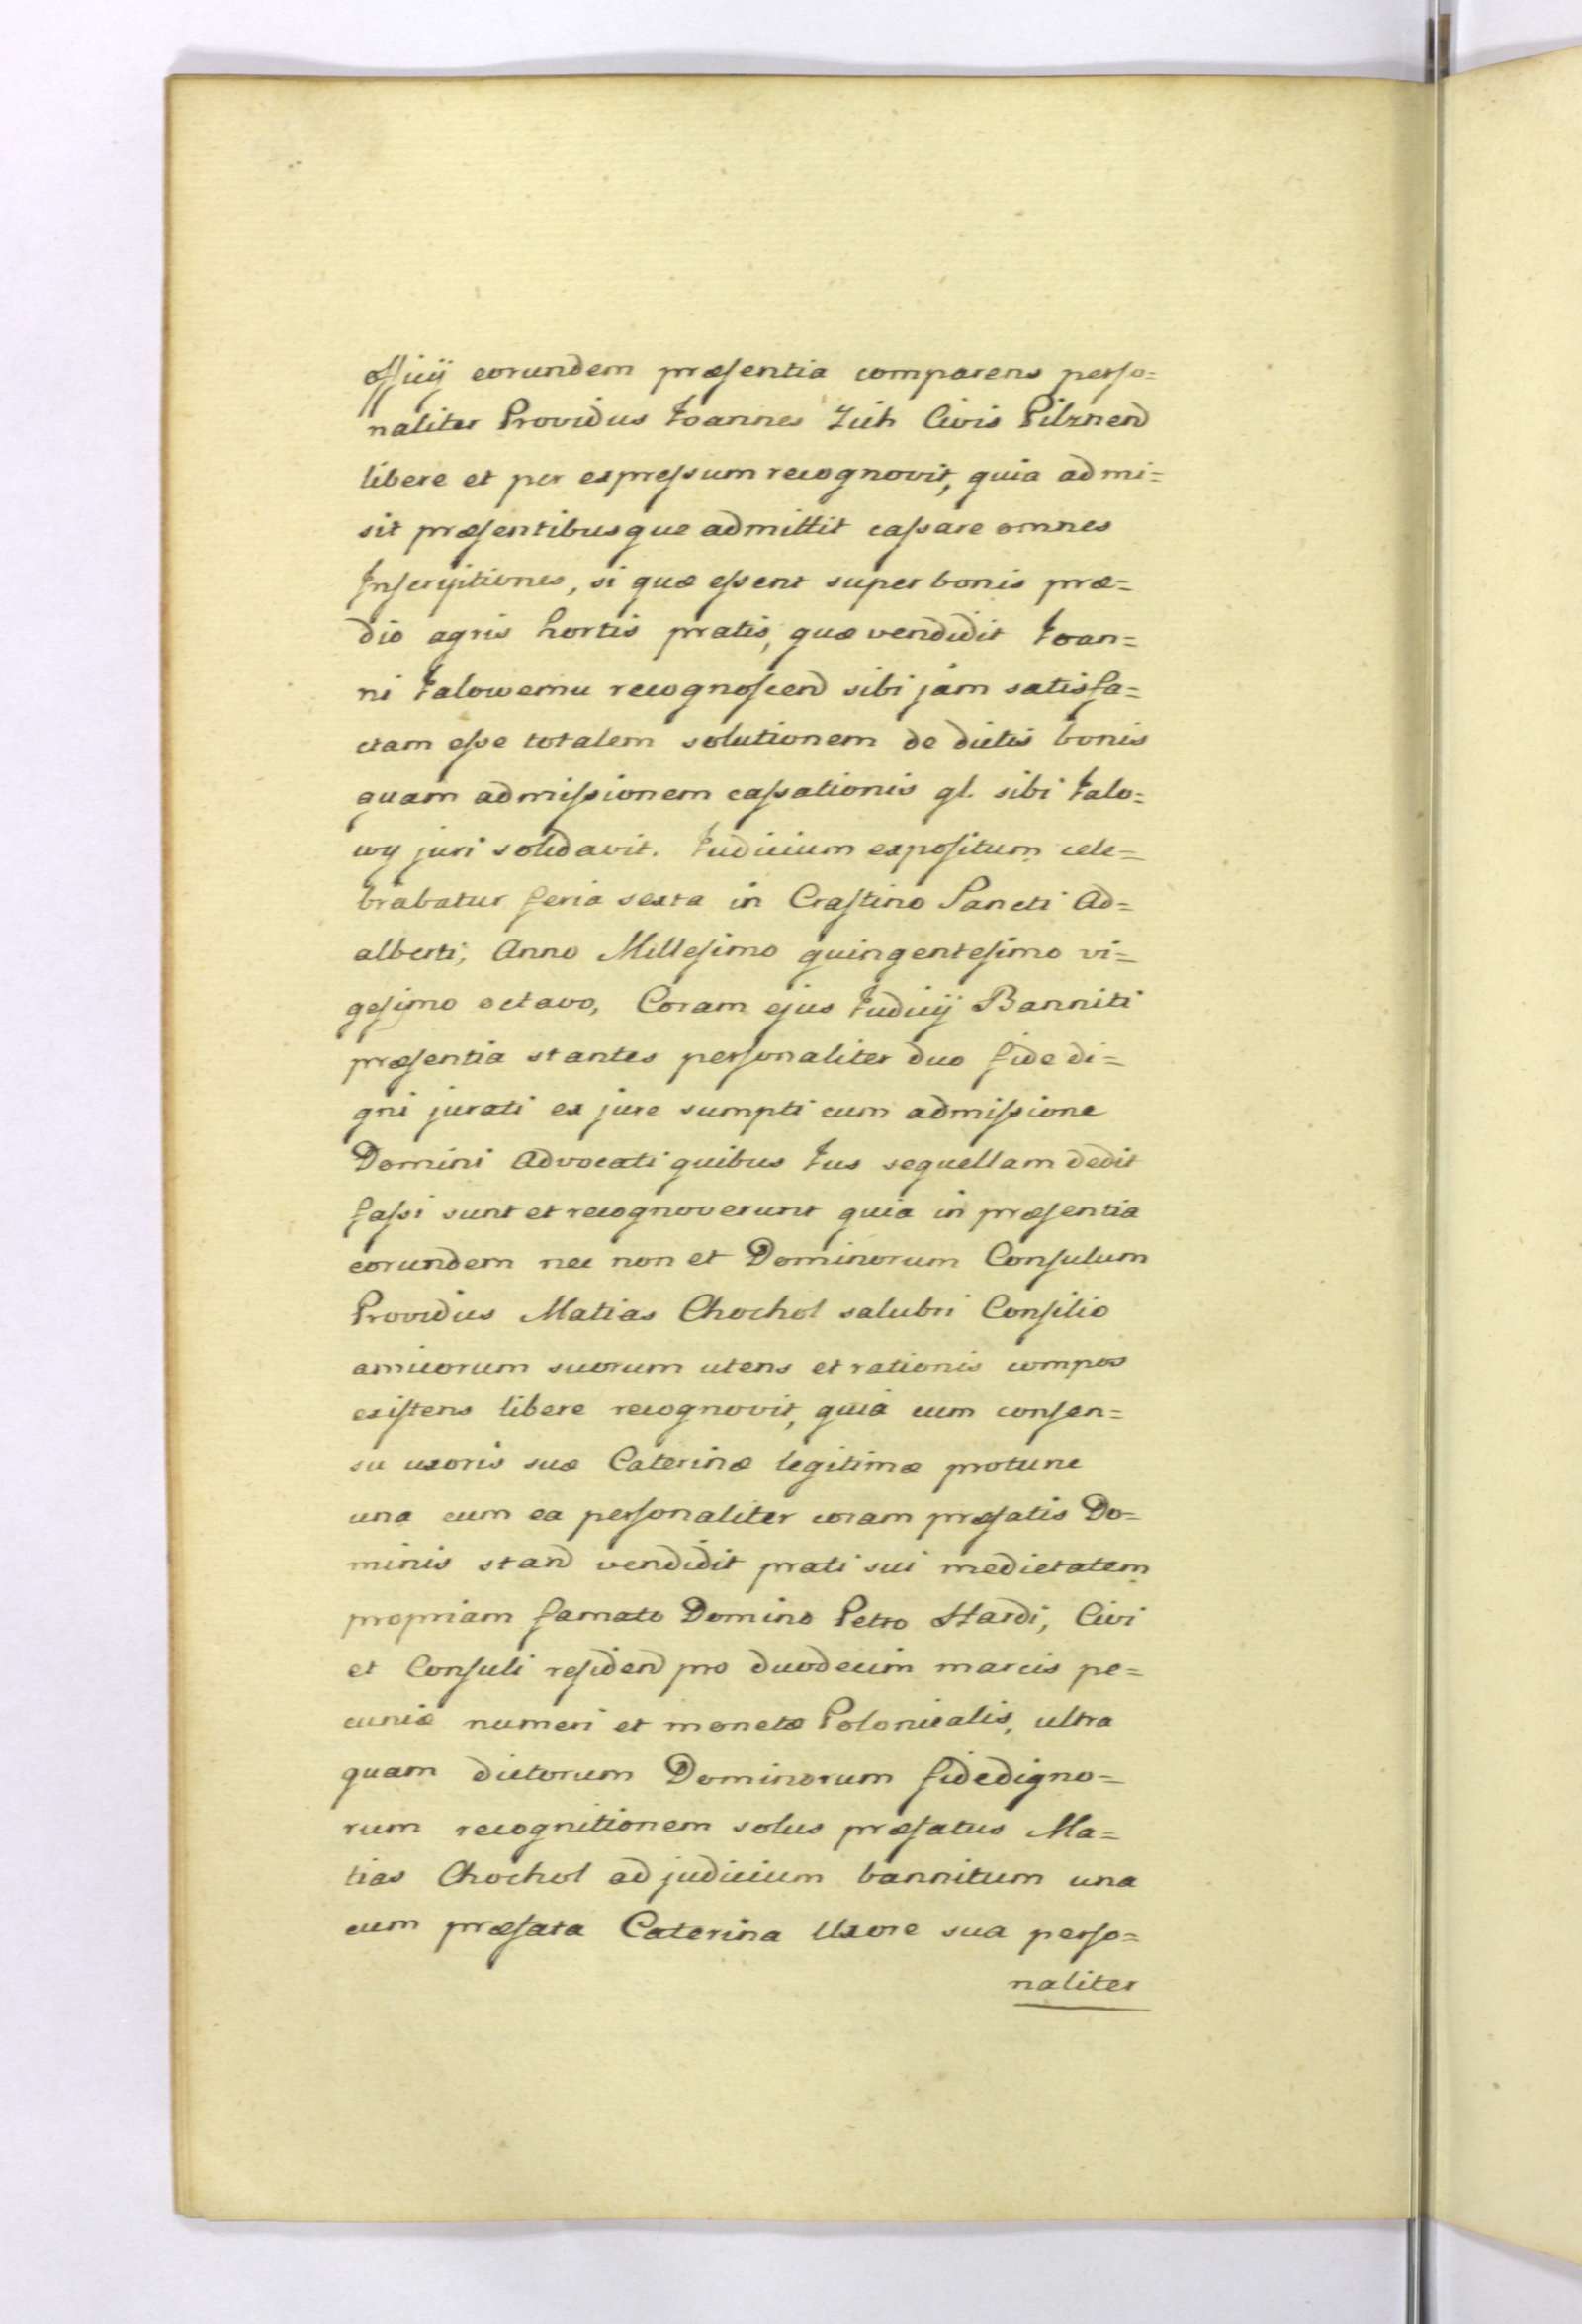 officij eorundem præsentia comparens perso=
naliter Providus Joannes Zich Civis Pilznend
libere et per expressum recognovit, quia admi=
sit præsentibusque admittit cassare omnes
Inscriptiones, si quæ essent super bonis præ=
dio agris hortis pratis, quæ vendidit Joan=
ni Jalowemu recognoscend sibi jam satisfa=
ctam esse totalem solutionem de dictis bonis
quam admissionem cassationis gl. sibi Jalo=
wy juri solidavit. Judicium expositum cele=
brabatur feria sexta in Crastino Sancti Ad=
alberti; Anno Millesimo quingentesimo vi=
gesimo octavo, Coram ejus Judicij Banniti
præsentia stantes personaliter duo fide di=
gni jurati ex jure sumpti cum admissione
Domini Advocati quibus Jus sequellam dedit
fassi sunt et recognoverunt quia in præsentia
eorundem nec non et Dominorum Consulum
Providus Matias Chochol salubri Consilio
amicorum suorum utens et rationis compos
existens libere recognovit, quia cum consen=
su uxoris suæ Caterinæ legitimæ protunc
una cum ea personaliter coram præfatis Do=
minis stand vendidit prati sui medietatem
propriam famato Domino Petro Hardi, Civi
et Consuli residend pro duodecim marcis pe=
cuniæ numeri et monetæ Polonicalis, ultra
quam dictorum Dominorum fidedigno=
rum recognitionem solus præfatus Ma=
tias Chochol ad judicium bannitum una
cum præfata Caterina Uxore sua perso=
naliter